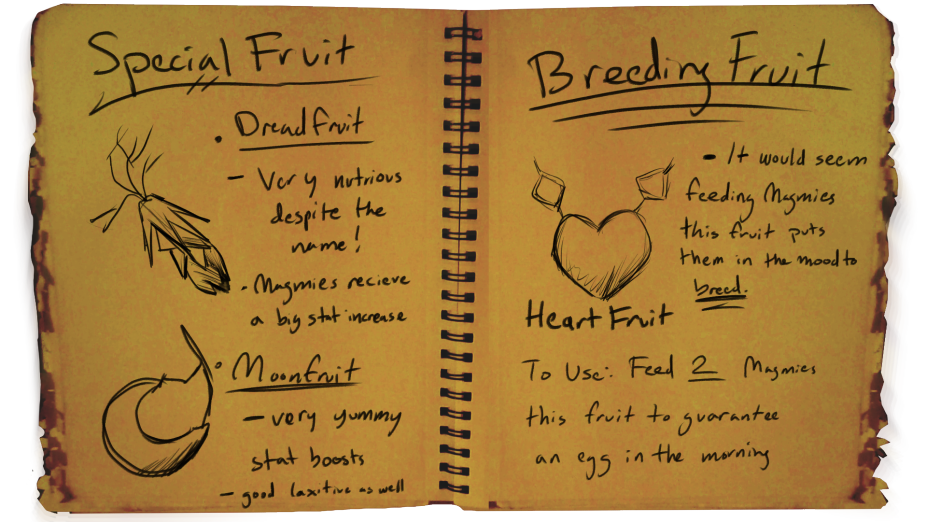 Special Fruit
• Dreadfruit
- Very nutrious
despite the
name!
- Magmies recieve
a big stat increase
• Moonfruit
- very yummy
stat boosts
- good laxitive as well
Breeding Fruit
- It would seem
feeding Magmies
this fruit puts
them in the mood to
breed.
Heart Fruit
To Use: Feed 2 Magmies
this fruit to guarantee
an egg in the morning